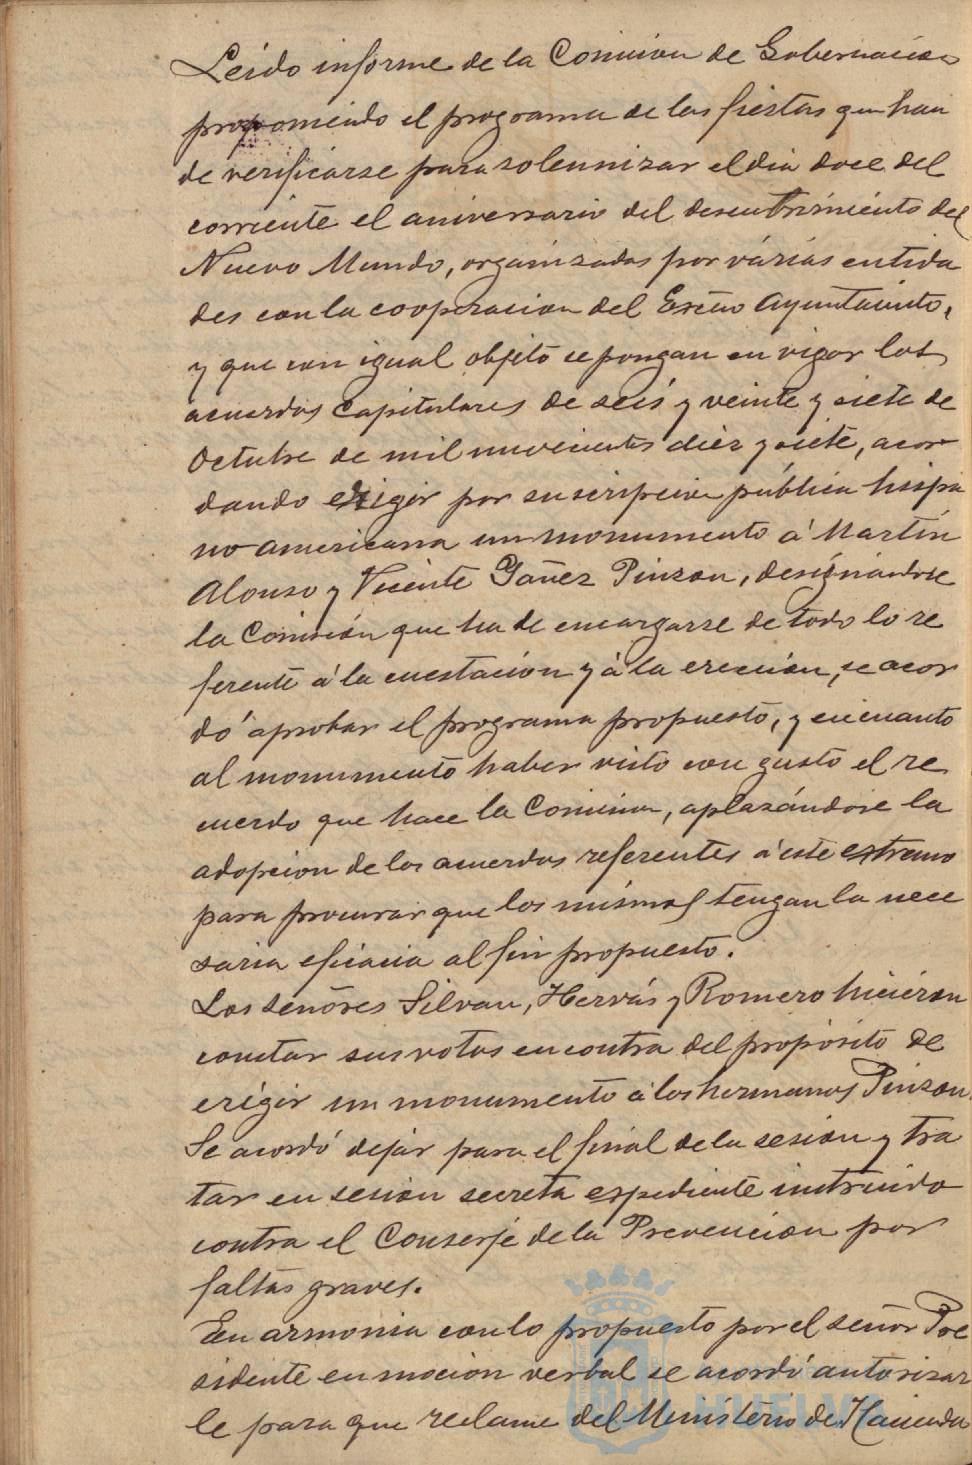 Leido informe de la Comision de Gobernacion
proponiendo el programa de las fiestas que han
de verificarse para solemnizar el dia doce del
corriente el aniversario del descubrimiento del
Nuevo Mundo, organizadas por várias entida
des con la cooperacion del Excmo Ayuntamiento,
y que con igual objeto se pongan en vigor los
acuerdos capitulares de seis y veinte y siete de
Octubre de mil novecientos diez y siete, acor
dando erigir por suscripcion pública hispa
no-americana un monumento á Martin
Alonso y Vicente Yañez Pinzon, designándose
la Comisión que ha de encargarse de todo lo re
ferente á la cuestacion y á la ereccion, se acor
dó aprobar el programa propuesto, y en cuanto
al monumento haber visto con gusto el re
cuerdo que hace la Comision, aplazándose la
adopcion de los acuerdos referentes á este extremo
para procurar que los mismos tengan la nece
saria eficacia al fin propuesto.
Los señores Silvan, Hervás y Romero hicieron
constar sus votos en contra del propósito de
erigir un monumento á los hermanos Pinzon.
Se acordó dejar para el final de la sesion y tra
tar en sesion secreta expediente instruido
contra el Conserje de la Prevencion por
faltas graves.
En armonia con lo propuesto por el señor Pre
sidente en mocion verbal se acordó autorizar
le para que reclame del Ministerio de Hacienda
HUELVA